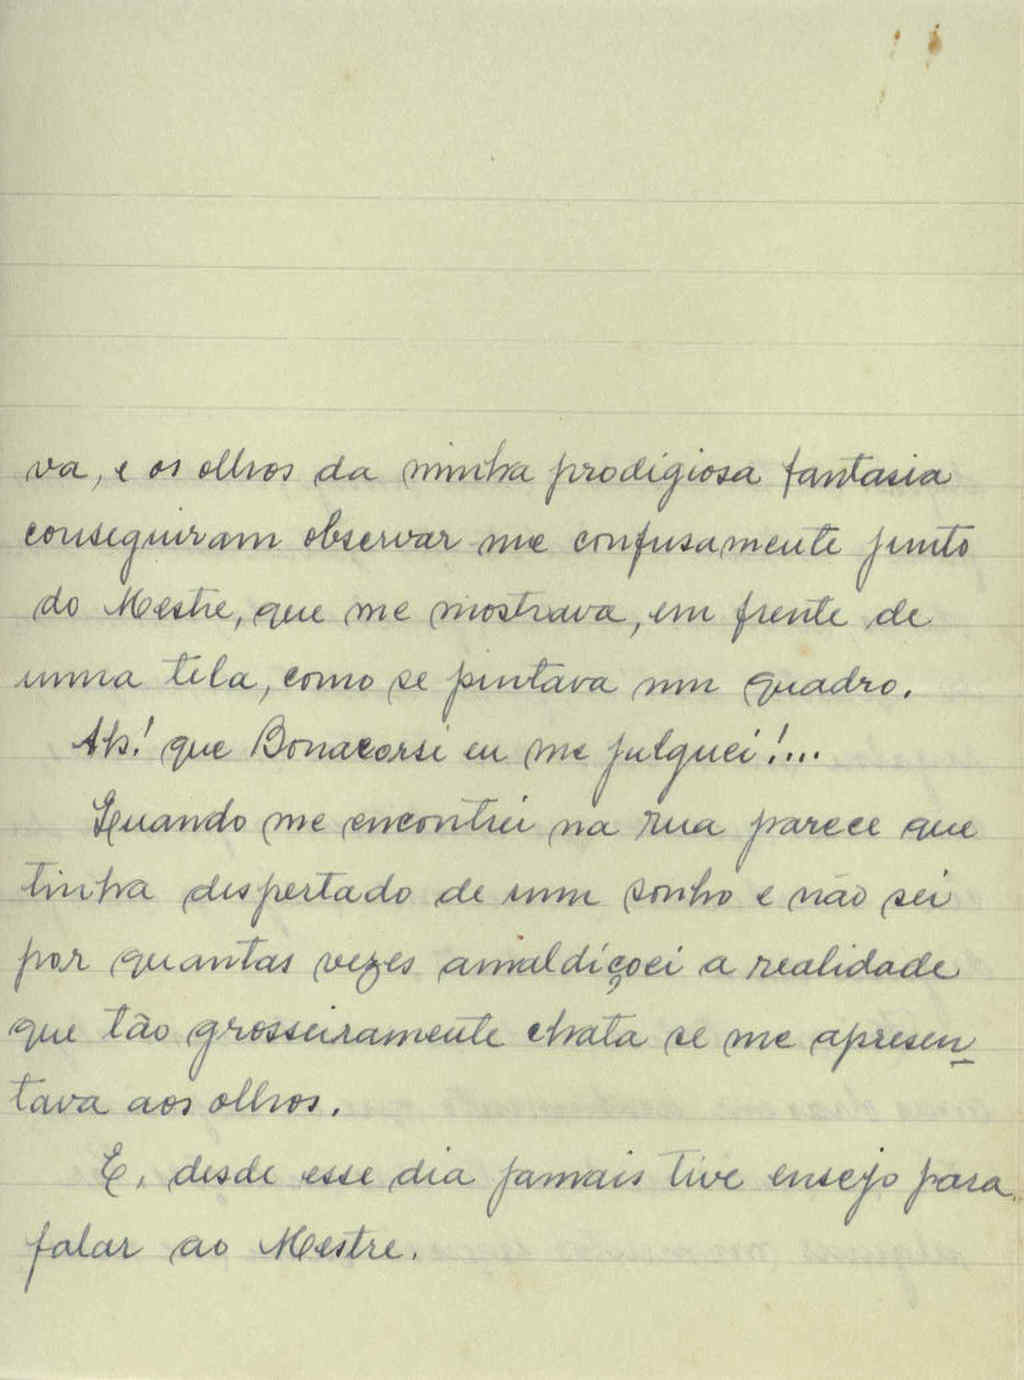 va, e os olhos da minha prodigiosa fantasia
conseguiram observar me confusamente junto
do Mestre, que me mostrava, em frente de
uma tela, como se pintava um quadro.
Ah! que Bonacorsi eu me julguei!...
Quando me encontrei na rua parece que
tinha despertado de um sonho e não sei
por quantas vezes amaldiçoei a realidade
que tão grosseiramente chata se me apresen-
tava aos olhos.
E, desde esse dia jamais tive ensejo para
falar ao Mestre.